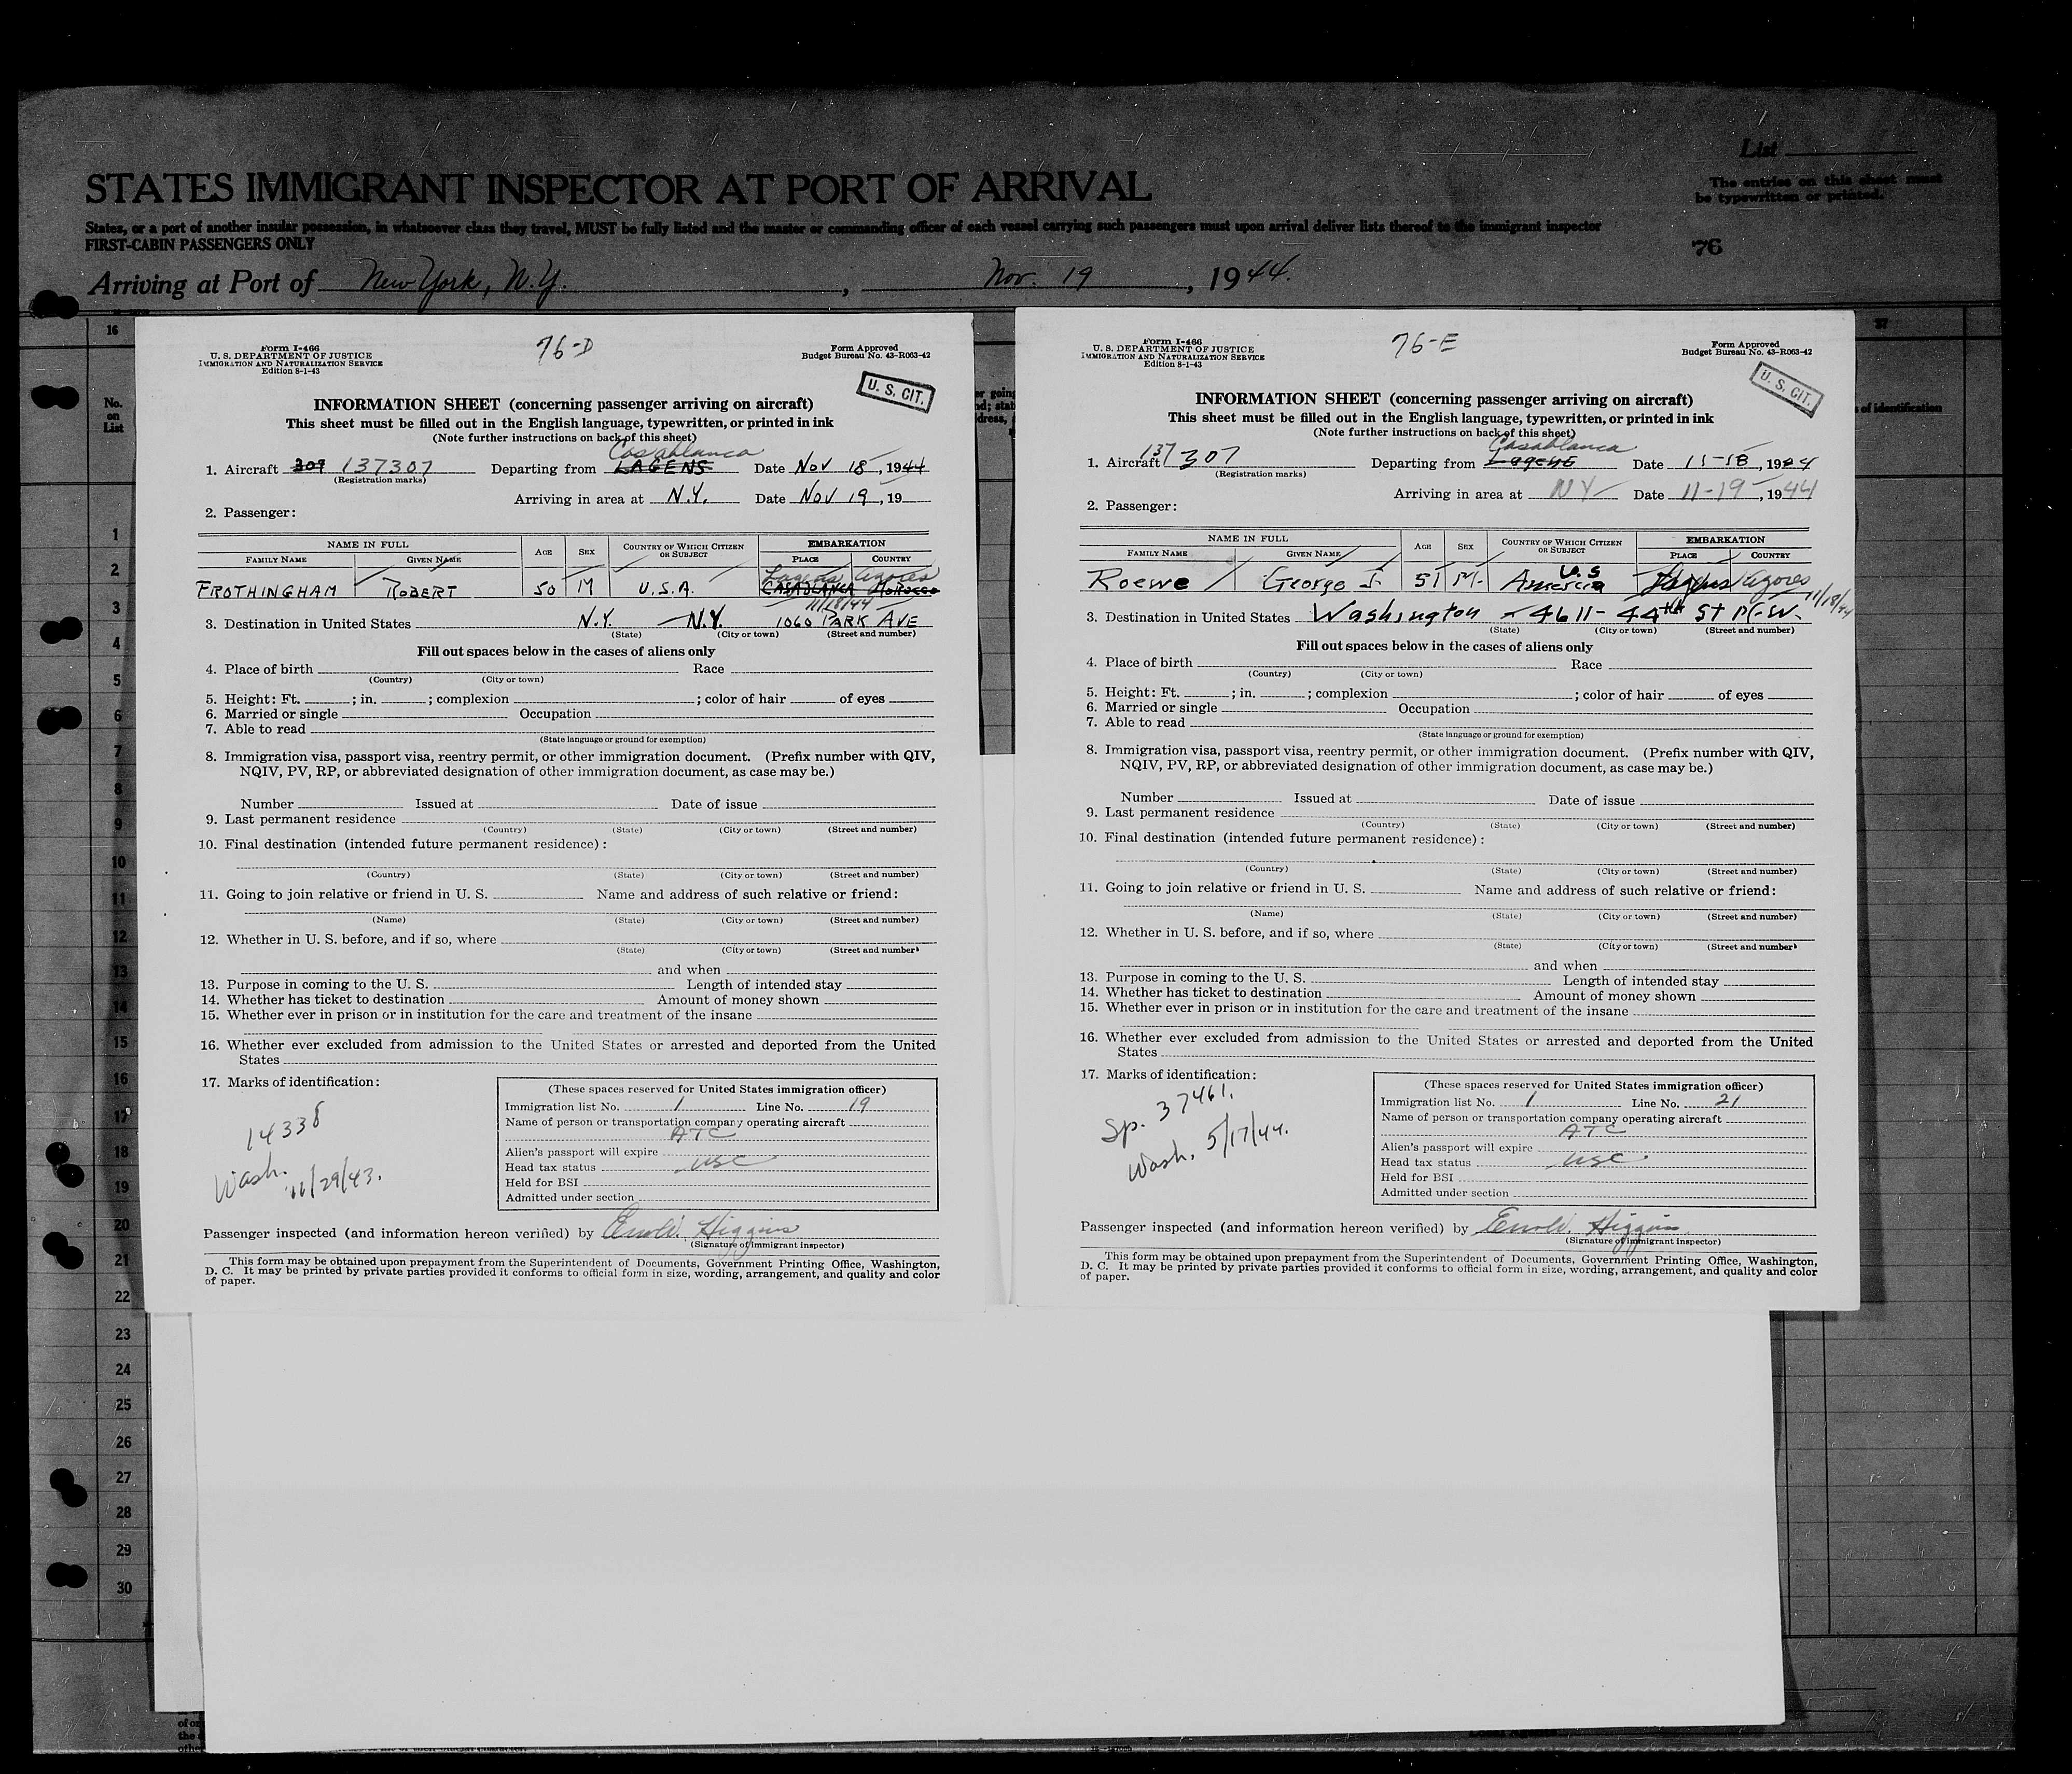 List
The entries on this sheet must
be typewritten or printed.
STATES IMMIGRANT INSPECTOR AT PORT OF ARRIVAL
States, or a port of another insular possession, in whatsoever class they travel, MUST be fully listed and the master or commanding officer of each vessel carrying such passengers must upon arrival deliver lists thereof to the immigrant inspector
FIRST-CABIN PASSENGERS ONLY
76
Arriving at Port of New York, N.Y. , Nov. 19 , 1944.
16
37
No.
on
List
s of identification
1
2
3
4
5
6
7
8
9
10
11
12
13
14
15
16
17
18
19
20
21
22
23
24
25
26
27
28
29
30
Form I-466
U. S. DEPARTMENT OF JUSTICE
IMMIGRATION AND NATURALIZATION SERVICE
Edition 8-1-43
76-D
Form Approved
Budget Bureau No. 43-R063-42
U. S. CIT.
INFORMATION SHEET (concerning passenger arriving on aircraft)
This sheet must be filled out in the English language, typewritten, or printed in ink
(Note further instructions on back of this sheet)
Casablanca
1. Aircraft 309 137307 Departing from LAGENS Date Nov 18, 1944
(Registration marks)
Arriving in area at N.Y. Date Nov 19, 19
2. Passenger:
NAME IN FULL AGE SEX COUNTRY OF WHICH CITIZEN OR SUBJECT EMBARKATION
FAMILY NAME GIVEN NAME PLACE COUNTRY
Lagens Azores
FROTHINGHAM ROBERT 50 M U.S.A. CASABLANCA MOROCCO
11/18/44
3. Destination in United States N.Y. N.Y. 1060 PARK AVE
(State) (City or town) (Street and number)
Fill out spaces below in the cases of aliens only
4. Place of birth Race
(Country) (City or town)
5. Height: Ft. ; in. ; complexion ; color of hair of eyes
6. Married or single Occupation
7. Able to read
(State language or ground for exemption)
8. Immigration visa, passport visa, reentry permit, or other immigration document. (Prefix number with QIV,
NQIV, PV, RP, or abbreviated designation of other immigration document, as case may be.)
Number Issued at Date of issue
9. Last permanent residence
(Country) (State) (City or town) (Street and number)
10. Final destination (intended future permanent residence):
(Country) (State) (City or town) (Street and number)
11. Going to join relative or friend in U. S. Name and address of such relative or friend:
(Name) (State) (City or town) (Street and number)
12. Whether in U. S. before, and if so, where
(State) (City or town) (Street and number)
and when
13. Purpose in coming to the U. S. Length of intended stay
14. Whether has ticket to destination Amount of money shown
15. Whether ever in prison or in institution for the care and treatment of the insane
16. Whether ever excluded from admission to the United States or arrested and deported from the United
States
17. Marks of identification:
14338
Wash.
11/29/43.
(These spaces reserved for United States immigration officer)
Immigration list No. 1 Line No. 19
Name of person or transportation company operating aircraft
ATC
Alien's passport will expire
Head tax status USC
Held for BSI
Admitted under section
Passenger inspected (and information hereon verified) by Higgins
(Signature of immigrant inspector)
This form may be obtained upon prepayment from the Superintendent of Documents, Government Printing Office, Washington,
D. C. It may be printed by private parties provided it conforms to official form in size, wording, arrangement, and quality and color
of paper.
Form I-466
U. S. DEPARTMENT OF JUSTICE
IMMIGRATION AND NATURALIZATION SERVICE
Edition 8-1-43
76-E
Form Approved
Budget Bureau No. 43-R063-42
U. S. CIT.
INFORMATION SHEET (concerning passenger arriving on aircraft)
This sheet must be filled out in the English language, typewritten, or printed in ink
(Note further instructions on back of this sheet)
Casablanca
1. Aircraft 137307 Departing from Lagens Date 11-18, 1944
(Registration marks)
Arriving in area at NY Date 11-19, 1944
2. Passenger:
NAME IN FULL AGE SEX COUNTRY OF WHICH CITIZEN OR SUBJECT EMBARKATION
FAMILY NAME GIVEN NAME PLACE COUNTRY
U.S
Roewe George J. 51 M. America Lagens Azores
11/18/44
3. Destination in United States Washington 4611- 44th ST N.W.
(State) (City or town) (Street and number)
Fill out spaces below in the cases of aliens only
4. Place of birth Race
(Country) (City or town)
5. Height: Ft. ; in. ; complexion ; color of hair of eyes
6. Married or single Occupation
7. Able to read
(State language or ground for exemption)
8. Immigration visa, passport visa, reentry permit, or other immigration document. (Prefix number with QIV,
NQIV, PV, RP, or abbreviated designation of other immigration document, as case may be.)
Number Issued at Date of issue
9. Last permanent residence
(Country) (State) (City or town) (Street and number)
10. Final destination (intended future permanent residence):
(Country) (State) (City or town) (Street and number)
11. Going to join relative or friend in U. S. Name and address of such relative or friend:
(Name) (State) (City or town) (Street and number)
12. Whether in U. S. before, and if so, where
(State) (City or town) (Street and number)
and when
13. Purpose in coming to the U. S. Length of intended stay
14. Whether has ticket to destination Amount of money shown
15. Whether ever in prison or in institution for the care and treatment of the insane
16. Whether ever excluded from admission to the United States or arrested and deported from the United
States
17. Marks of identification:
Sp. 37461.
Wash. 5/17/44.
(These spaces reserved for United States immigration officer)
Immigration list No. 1 Line No. 21
Name of person or transportation company operating aircraft
ATC
Alien's passport will expire
Head tax status USC
Held for BSI
Admitted under section
Passenger inspected (and information hereon verified) by Higgins
(Signature of immigrant inspector)
This form may be obtained upon prepayment from the Superintendent of Documents, Government Printing Office, Washington,
D. C. It may be printed by private parties provided it conforms to official form in size, wording, arrangement, and quality and color
of paper.